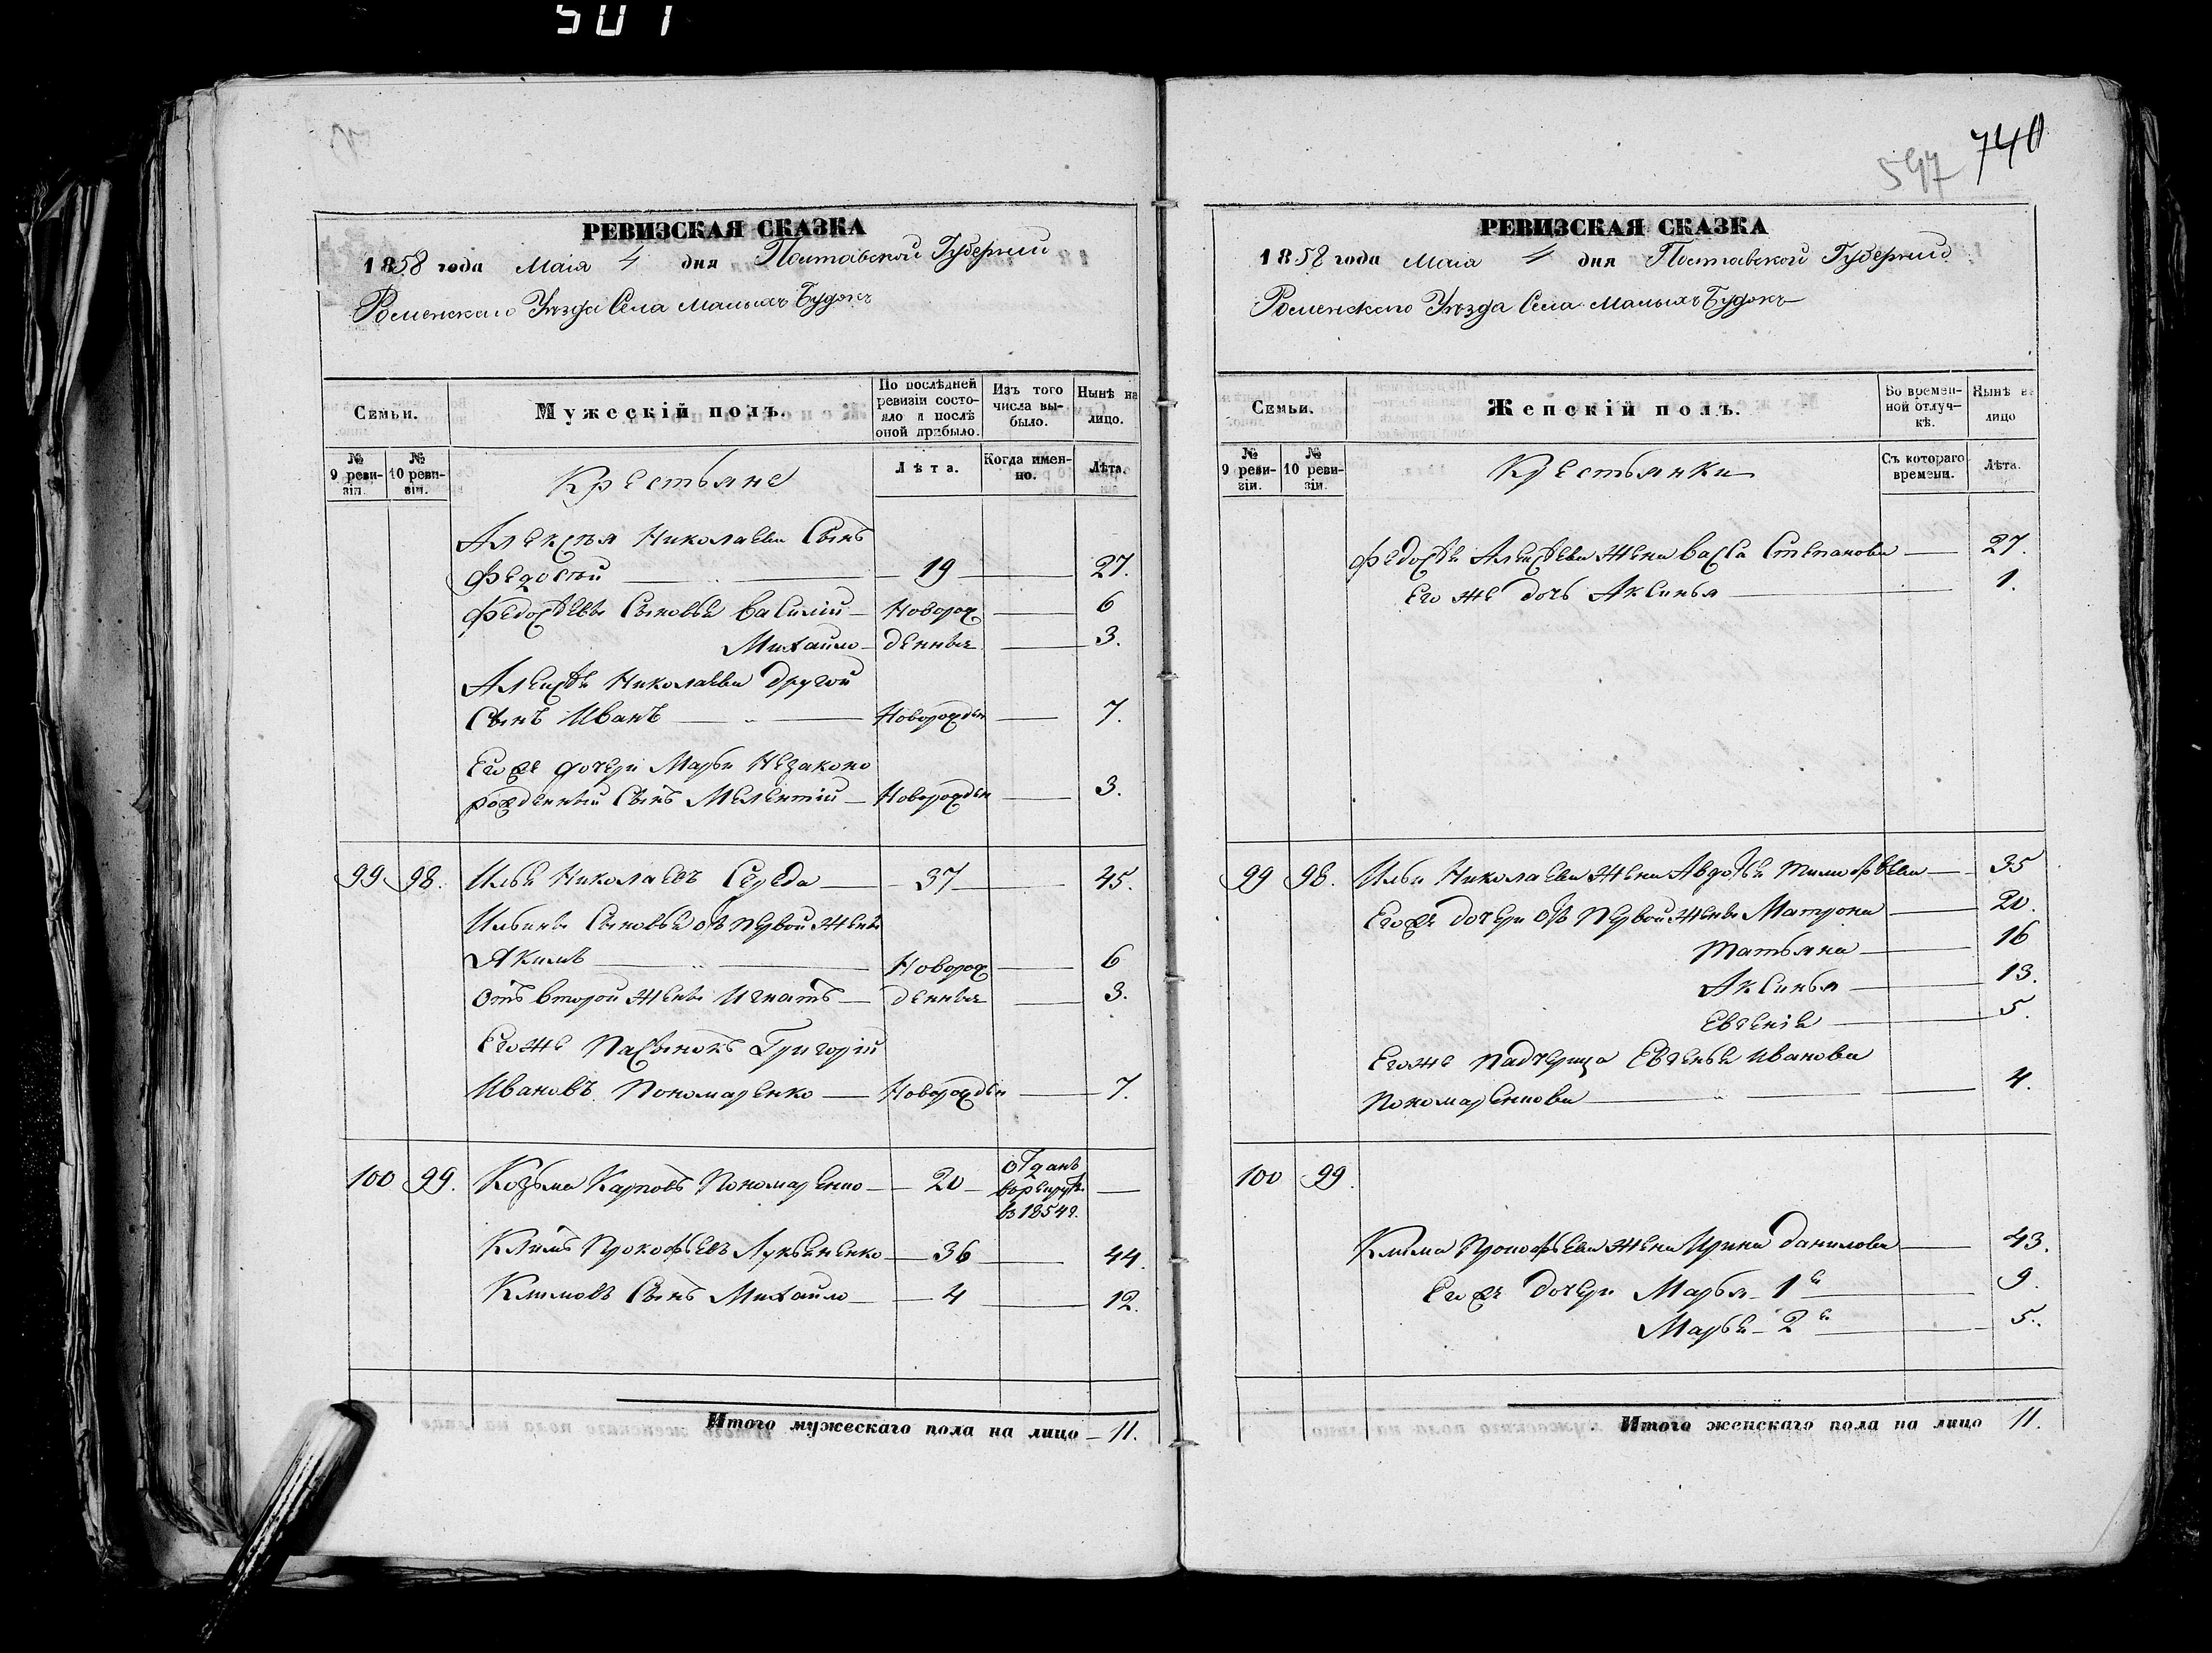 501
РЕВИЗСКАЯ СКАЗКА
1858 года Маія 4 дня Полтавской Губерніи
Роменскаго Уѣзда Села Малыхъ Будокъ
Семьи.
Мужескій полъ.
По послѣдней ревизіи состояло и послѣ оной прибыло.
Изъ того числа выбыло.
Нынѣ на лицо.
№ 9 ревизіи.
№ 10 ревизіи.
Крестьяне
Лѣта.
Когда именно.
Лѣта.
Алексѣя Николаева Сынъ
Федосѣй 19 27.
Федосѣевы Сыновья Василій Новорож 6
Михайло денныя 3.
Алексѣя Николаева другой
Сынъ Иванъ Новорожден 7.
Его же дочери Марьи Незаконо
рожденный Сынъ Мелентій Новорожден 3.
99 98. Илья Николаевъ Середа 37 45.
Ильины Сыновья отъ первой жены
Якимъ Новорож 6
Отъ второй жены Игнатъ денныя 3.
Его же Пасынокъ Григорій
Ивановъ Пономаренко Новорожден 7.
100 99. Козьма Карповъ Пономаренко 20 отданъ въ рекруты въ 1854 г.
Климъ Прокофьевъ Лукьяненко 36 44.
Климовъ Сынъ Михайло 4 12.
Итого мужескаго пола на лицо 11.
740
547
РЕВИЗСКАЯ СКАЗКА
1858 года Маія 4 дня Полтавской Губерніи
Роменскаго Уѣзда Села Малыхъ Будокъ
Семьи.
Женскій полъ.
Во временной отлучкѣ.
Нынѣ на лицо
№ 9 ревизіи.
№ 10 ревизіи.
Крестьянки
Съ котораго времени.
Лѣта.
Федосѣя Алексѣева жена Васса Степанова 27.
Его же дочь Аксинья 1.
99 98. Ильи Николаева жена Авдотья Тимофѣева 35
Его же дочери отъ первой жены Матрона 20.
Татьяна 16
Аксинья 13.
Евгенія 5.
Его же падчерица Евгенья Иванова
Пономаренкова 4.
100 99.
Клима Прокофьева жена Ирина Данилова 43.
Его же дочери Марья 1я 9.
Марья 2я 5.
Итого женскаго пола на лицо 11.